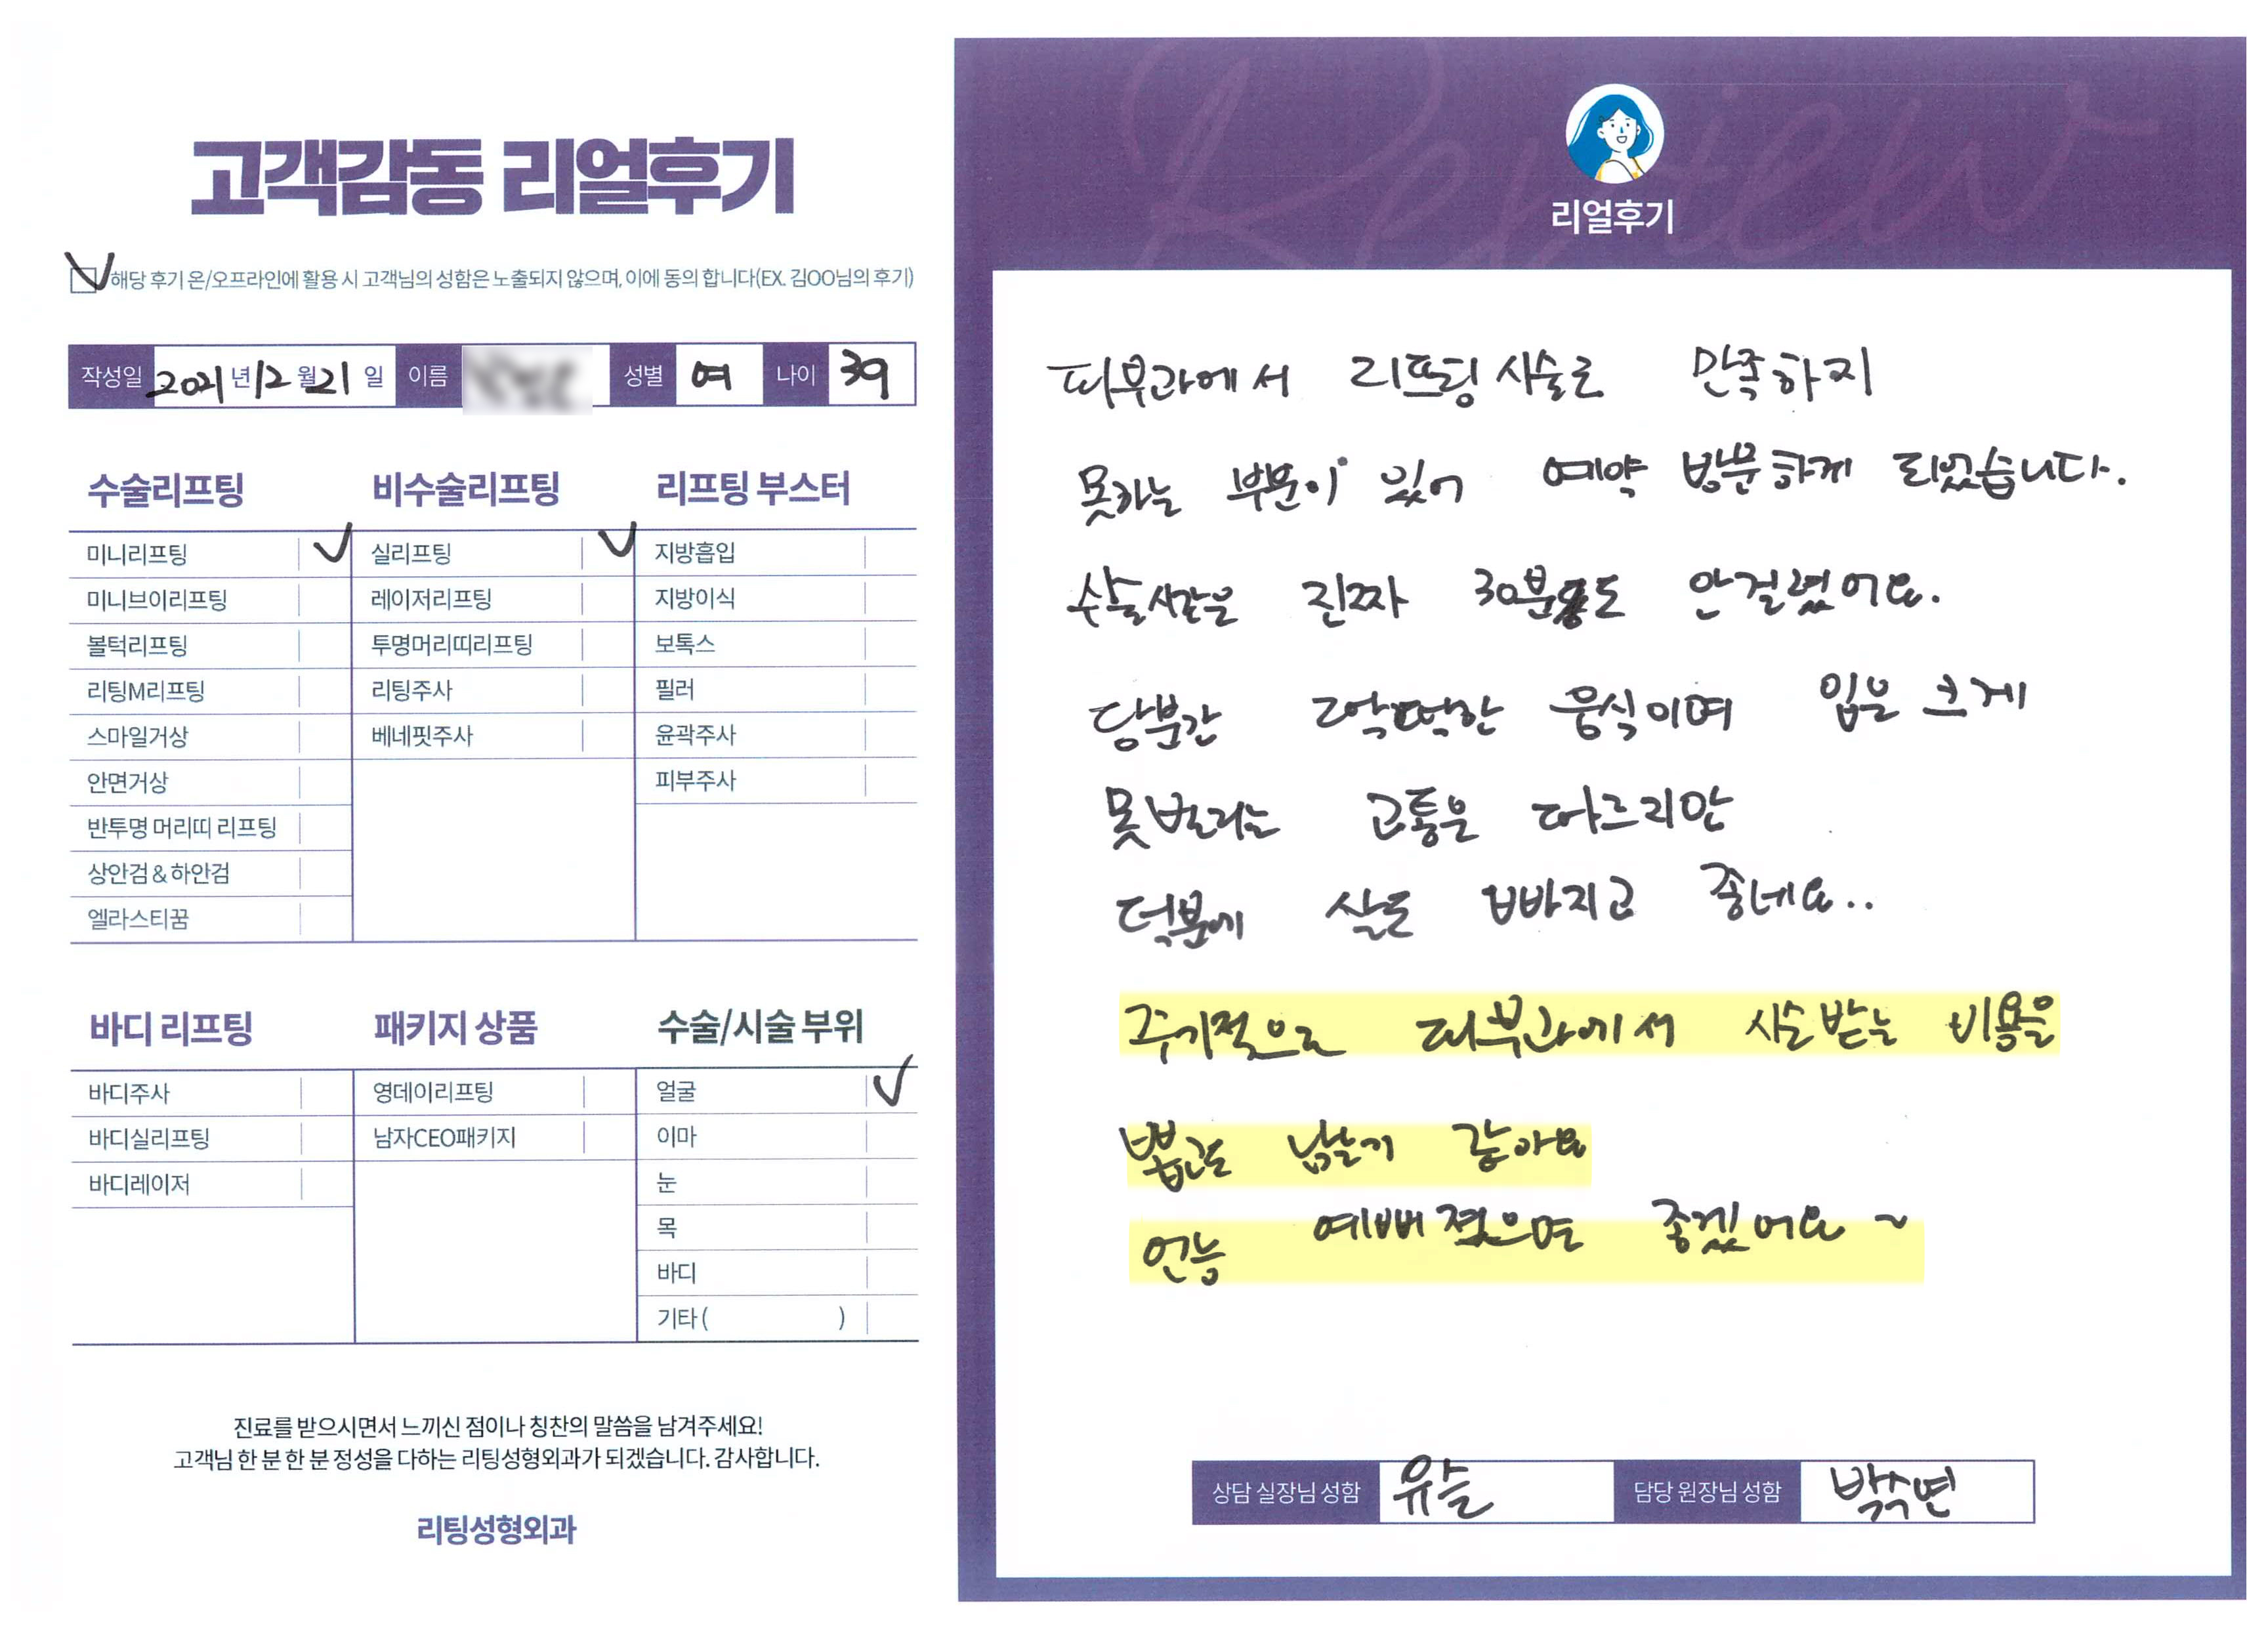 고객감동 리얼후기
해당 후기 온/오프라인에 활용 시 고객님의 성함은 노출되지 않으며, 이에 동의 합니다(EX. 김OO님의 후기)
작성일 2021 년 12 월 21 일 이름 성별 여 나이 39
수술리프팅
미니리프팅
미니브이리프팅
볼턱리프팅
리팅M리프팅
스마일거상
안면거상
반투명 머리띠 리프팅
상안검 & 하안검
엘라스티꿈
비수술리프팅
실리프팅
레이저리프팅
투명머리띠리프팅
리팅주사
베네핏주사
리프팅 부스터
지방흡입
지방이식
보톡스
필러
윤곽주사
피부주사
바디 리프팅
바디주사
바디실리프팅
바디레이저
패키지 상품
영데이리프팅
남자CEO패키지
수술/시술 부위
얼굴
이마
눈
목
바디
기타 ( )
진료를 받으시면서 느끼신 점이나 칭찬의 말씀을 남겨주세요!
고객님 한 분 한 분 정성을 다하는 리팅성형외과가 되겠습니다. 감사합니다.
리팅성형외과
Review
리얼후기
피부과에서 리프팅 시술로 만족하지
못하는 부분이 있어 예약 방문하게 되었습니다.
수술시간은 진짜 30분도 안걸렸어요.
당분간 딱딱한 음식이며 입을 크게
못벌리는 고통은 따르지만
덕분에 살도 빠지고 좋네요..
주기적으로 피부과에서 시술받는 비용을
뽑고도 남을거 같아요
언능 예뻐졌으면 좋겠어요 ~
상담 실장님 성함 유슬
담당 원장님 성함 박수연